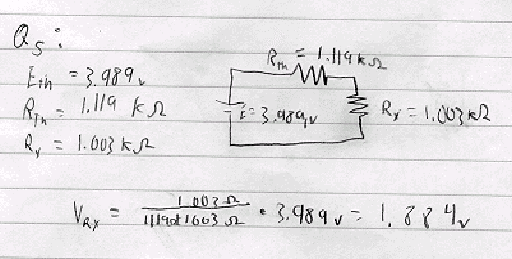 Q5:
Eth = 3.989v
RTh = 1.119 kΩ
Rx = 1.003 kΩ
RTh = 1.119 kΩ
E = 3.989v
Rx = 1.003 kΩ
VRx = 1.003 Ω / 1.119Ω+1.003 Ω • 3.989v = 1.884v